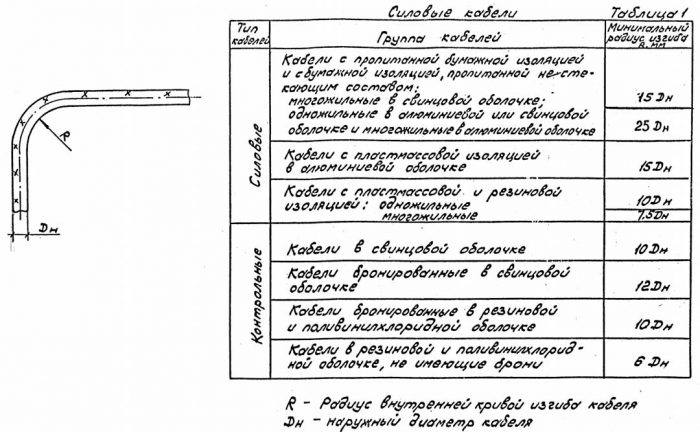 Силовые кабели
Таблица 1
Тип
кабелей
Группа кабелей
Минимальный
радиус изгиба
R, мм
Силовые
Кабели с пропитанной бумажной изоляцией
и с бумажной изоляцией, пропитанной не сте-
кающим составом:
многожильные в свинцовой оболочке;
15Dн
одножильные в алюминиевой или свинцовой
оболочке и многожильные в алюминиевой оболочке
25Dн
Кабели с пластмассовой изоляцией
в алюминиевой оболочке
15Dн
Кабели с пластмассовой и резиновой
изоляцией: одножильные
10Dн
многожильные
7,5Dн
Контрольные
Кабели в свинцовой оболочке
10Dн
Кабели бронированные в свинцовой
оболочке
12Dн
Кабели бронированные в резиновой
и поливинилхлоридной оболочке
10Dн
Кабели в резиновой и поливинилхлорид-
ной оболочке, не имеющие брони
6Dн
R
Dн
R - Радиус внутренней кривой изгиба кабеля
Dн - наружный диаметр кабеля